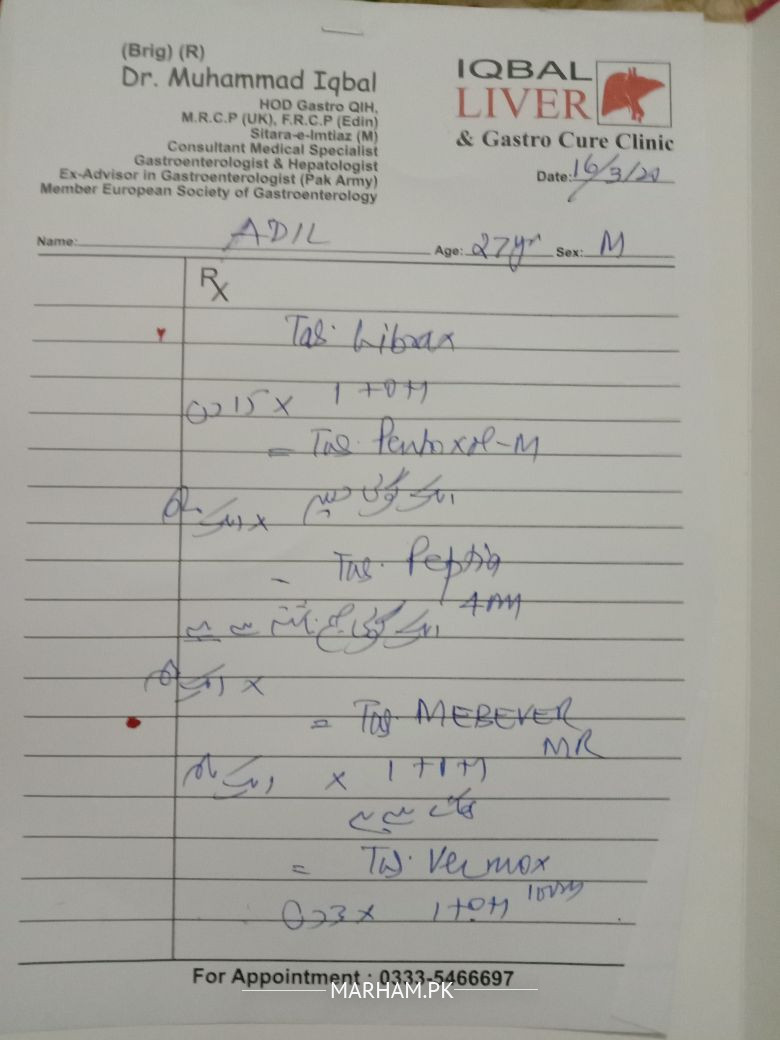 (Brig) (R)
Dr. Muhammad Iqbal
HOD Gastro QIH,
M.R.C.P (UK), F.R.C.P (Edin)
Sitara-e-Imtiaz (M)
Consultant Medical Specialist
Gastroenterologist & Hepatologist
Ex-Advisor in Gastroenterologist (Pak Army)
Member European Society of Gastroenterology
IQBAL
LIVER
& Gastro Cure Clinic
Date: 16/3/20
Name: ADIL Age: 27yr Sex: M
Rx
Tab. Librax
1+0+1 x 15 دن
= Tab.
ایک گولی
x ایک ماہ
- Tab. Peptia
ایک گولی
x ایک ماہ
= Tab. MEBEVER
MR
1+1+1 x ایک ماہ
= Tab. Vermox
1+0+1 x 3 دن
For Appointment : 0333-5466697
MARHAM.PK